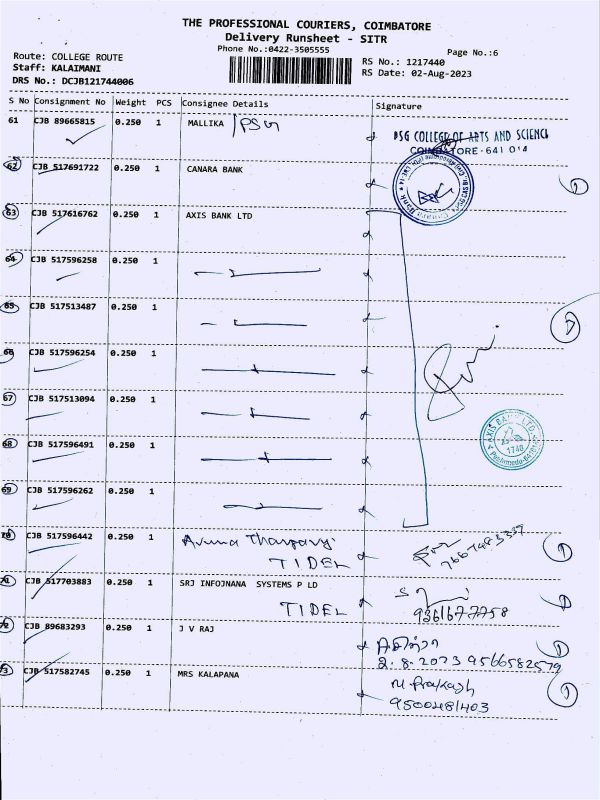 THE PROFESSIONAL COURIERS, COIMBATORE
Delivery Runsheet - SITR
Phone No.:0422-3505555
Page No.:6
Route: COLLEGE ROUTE
Staff: KALAIMANI
DRS No.: DCJB121744006
RS No.: 1217440
RS Date: 02-Aug-2023
S No Consignment No Weight PCS Consignee Details Signature
61 CJB 89665815 0.250 1 MALLIKA /PSG
PSG COLLEGE OF ARTS AND SCIENCE
COIMBATORE-641 014
62 CJB 517691722 0.250 1 CANARA BANK
63 CJB 517616762 0.250 1 AXIS BANK LTD
64 CJB 517596258 0.250 1
65 CJB 517513487 0.250 1
66 CJB 517596254 0.250 1
67 CJB 517513094 0.250 1
AXIS BANK LTD.
1748
68 CJB 517596491 0.250 1
69 CJB 517596262 0.250 1
70 CJB 517596442 0.250 1
TIDEL
71 CJB 517703883 0.250 1 SRJ INFOJNANA SYSTEMS P LD
TIDEL
72 CJB 89683293 0.250 1 J V RAJ
2.8.2023 9566582579
73 CJB 517582745 0.250 1 MRS KALAPANA
M. Prakash
9500481403